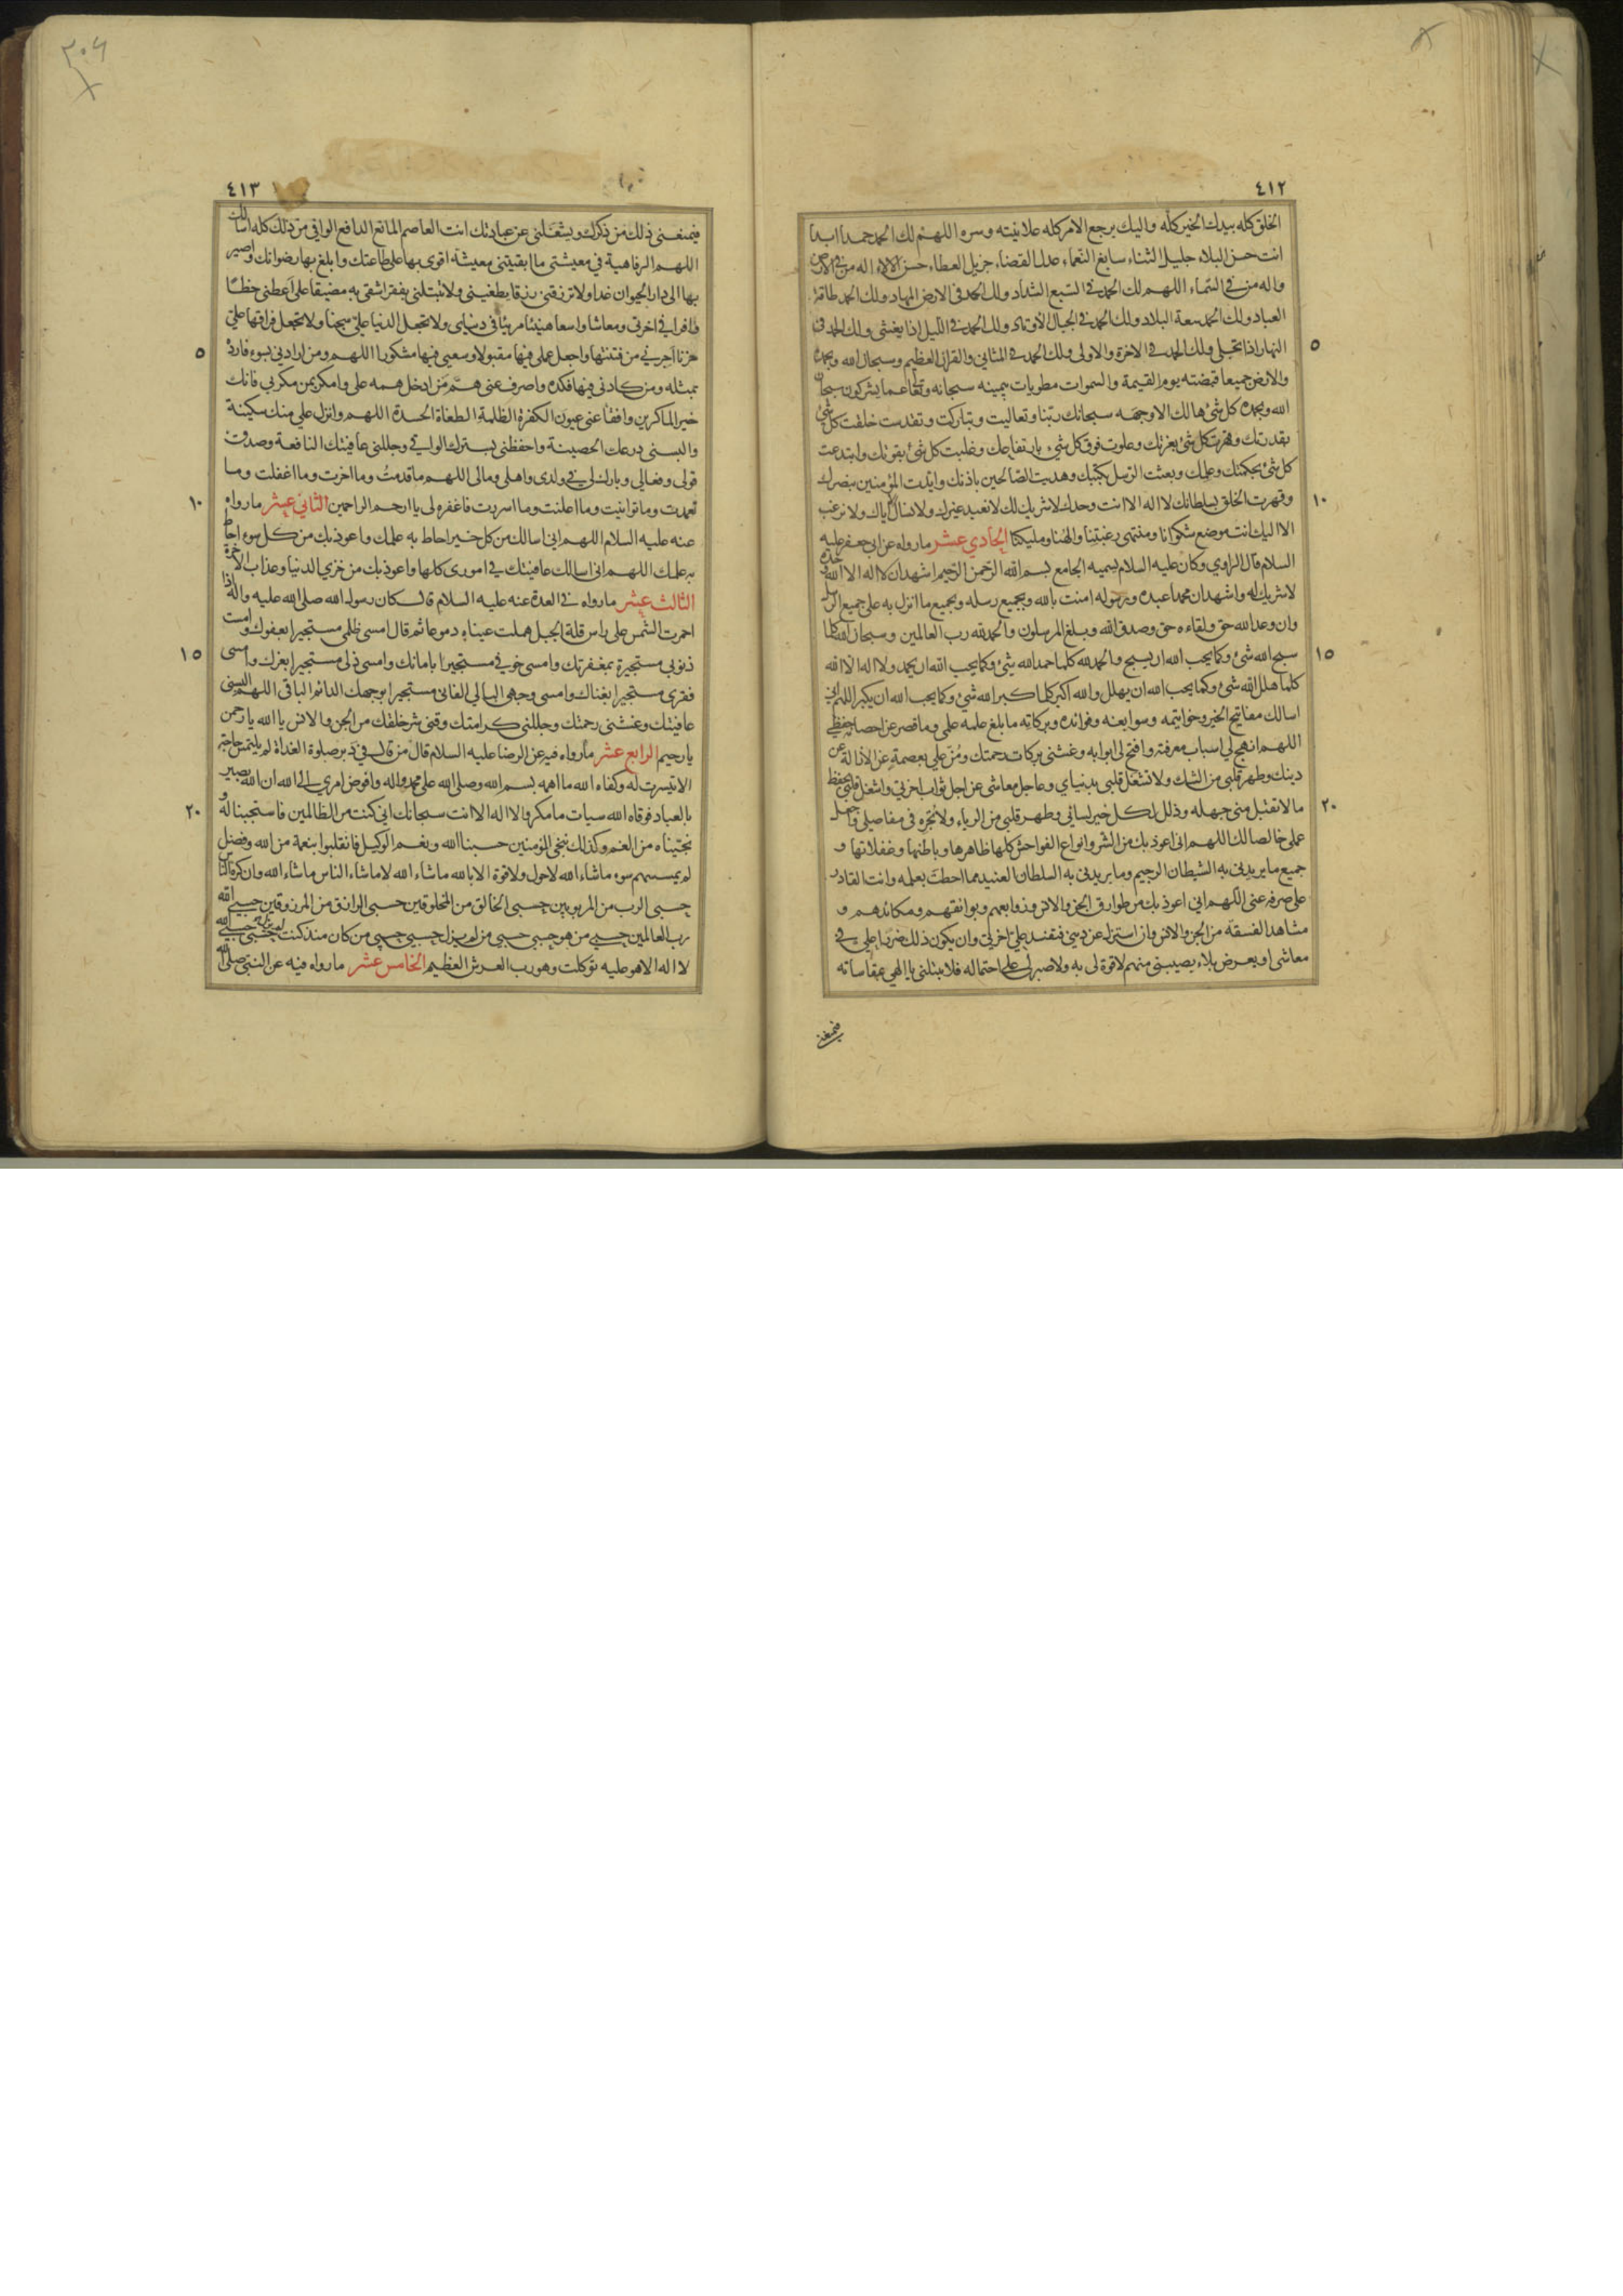 ٤١٢
الخلق كله بيدك الخير كله واليك يرجع الامر كله علانيته وسره اللهم لك الحمد حمدا ابدا
انت حسن البلاء جليل الثناء سابغ النعماء عدل القضاء جزيل العطاء حسن الالاء اله من في الارض
واله من في السماء اللهم لك الحمد في السبع الشداد ولك الحمد في الارض المهاد ولك الحمد طاقة
العباد ولك الحمد سعة البلاد ولك الحمد في الجبال الاوتاد ولك الحمد في الليل اذا يغشى ولك الحمد في
٥
النهار اذا تجلى ولك الحمد في الاخرة والاولى ولك الحمد في المثاني والقران العظيم وسبحان الله وبحمده
والارض جميعا قبضته يوم القيمة والسموات مطويات بيمينه سبحانه وتعالى عما يشركون سبحان
الله وبحمده كل شئ هالك الا وجهه سبحانك ربنا وتعاليت وتباركت وتقدست خلقت كل شئ
بقدرتك وقهرت كل شئ بعزتك وعلوت فوق كل شئ بارتفاعك وغلبت كل شئ بقوتك وابتدعت
كل شئ بحكمتك وعلمك وبعثت الرسل بكتبك وهديت الصالحين باذنك وايدت المؤمنين بنصرك
١٠
وقهرت الخلق بسلطانك لا اله الا انت وحدك لا شريك لك لا نعبد غيرك ولا نسال الا اياك ولا نرغب
الا اليك انت موضع شكوانا ومنتهى رغبتنا والهنا ومليكنا الحادي عشر ما رواه عن ابي جعفر عليه
السلام قال الراوي وكان عليه السلام يسميه الجامع بسم الله الرحمن الرحيم اشهد ان لا اله الا الله وحده
لا شريك له واشهد ان محمدا عبده ورسوله امنت بالله وبجميع رسله وبجميع ما انزل به على جميع الرسل
وان وعد الله حق ولقاءه حق وصدق الله وبلغ المرسلون والحمد لله رب العالمين وسبحان الله كلما
١٥
سبح الله شئ وكما يحب الله ان يسبح والحمد لله كلما حمد الله شئ وكما يحب الله ان يحمد ولا اله الا الله
كلما هلل الله شئ وكما يحب الله ان يهلل والله اكبر كلما كبر الله شئ وكما يحب الله ان يكبر اللهم اني
اسالك مفاتيح الخير وخواتيمه وسوابغه وفوائده وبركاته ما بلغ علمه علمي وما قصر عن احصائه حفظي
اللهم انهج لي اسباب معرفته وافتح لي ابوابه وغشني بركات رحمتك ومن علي بعصمة عن الازالة عن
دينك وطهر قلبي من الشك ولا تشغل قلبي بدنياي وعاجل معاشي عن اجل ثواب اخرتي واشغل قلبي بحفظ
٢٠
ما لا تقبل مني جهله وذلل لكل خير لساني وطهر قلبي من الرياء ولا تجره في مفاصلي واجعل
عملي خالصا لك اللهم اني اعوذ بك من الشر وانواع الفواحش كلها ظاهرها وباطنها وغفلاتها و
جميع ما يريدني به الشيطان الرجيم وما يريدني به السلطان العنيد مما احطت بعلمه وانت القادر
على صرفه عني اللهم اني اعوذ بك من طوارق الجن والانس وزوابعهم وبوائقهم ومكائدهم و
مشاهد الفسقة من الجن والانس وان استزل عن ديني فتفسد علي اخرتي وان يكون ذلك ضررا علي في
معاشي او بعرض بلاء يصيبني منهم لا قوة لي به ولا صبر لي على احتماله فلا تبتلني يا الهي بمقاساته
فيمنعني
٣٠٦
٤١٣
فيمنعني ذلك من ذكرك ويشغلني عن عبادتك انت العاصم المانع الدافع الواقي من ذلك كله اسالك
اللهم الرفاهية في معيشتي ما ابقيتني معيشة اقوى بها على طاعتك وابلغ بها رضوانك واصير
بها الى دار الحيوان غدا ولا ترزقني رزقا يطغيني ولا تبتلني بفقر اشقى به مضيقا علي اعطني حظا
وافرا في اخرتي ومعاشا واسعا هنيئا مريئا في دنياي ولا تجعل الدنيا علي سجنا ولا تجعل فراقها علي
٥
حزنا اجرني من فتنتها واجعل عملي فيها مقبولا وسعيي فيها مشكورا اللهم ومن ارادني بسوء فارده
بمثله ومن كادني فيها فكده واصرف عني هم من ادخل همه علي وامكر بمن مكر بي فانك
خير الماكرين وافقا عني عيون الكفرة الظلمة الطغاة الحسدة اللهم وانزل علي منك سكينة
والبسني درعك الحصينة واحفظني بسترك الواقي وجللني عافيتك النافعة وصدق
قولي وفعالي وبارك لي في ولدي واهلي ومالي اللهم ما قدمت وما اخرت وما اغفلت وما
١٠
تعمدت وما توانيت وما اعلنت وما اسررت فاغفره لي يا ارحم الراحمين الثاني عشر ما رواه
عنه عليه السلام اللهم اني اسالك من كل خير احاط به علمك واعوذ بك من كل سوء احاط
به علمك اللهم اني اسالك عافيتك في اموري كلها واعوذ بك من خزي الدنيا وعذاب الاخرة
الثالث عشر ما رواه في العدة عنه عليه السلام قال كان رسول الله صلى الله عليه واله اذا
احمرت الشمس على راس قلة الجبل هملت عيناه دموعا ثم قال امسى ظلمي مستجيرا بعفوك وامست
١٥
ذنوبي مستجيرة بمغفرتك وامسى خوفي مستجيرا بامانك وامسى ذلي مستجيرا بعزك وامسى
فقري مستجيرا بغناك وامسى وجهي البالي الفاني مستجيرا بوجهك الدائم الباقي اللهم البسني
عافيتك وغشني رحمتك وجللني كرامتك وقني شر خلقك من الجن والانس يا الله يا رحمن
يا رحيم الرابع عشر ما رواه فيه عن الرضا عليه السلام قال من قال في دبر صلوة الغداة لم يلتمس حاجة
الا تيسرت له وكفاه الله ما اهمه بسم الله وصلى الله على محمد واله وافوض امري الى الله ان الله بصير
٢٠
بالعباد فوقاه الله سيات ما مكروا لا اله الا انت سبحانك اني كنت من الظالمين فاستجبنا له و
نجيناه من الغم وكذلك ننجي المؤمنين حسبنا الله ونعم الوكيل فانقلبوا بنعمة من الله وفضل
لم يمسسهم سوء ما شاء الله لا حول ولا قوة الا بالله ما شاء الله لا ما شاء الناس ما شاء الله وان كره الناس
حسبي الرب من المربوبين حسبي الخالق من المخلوقين حسبي الرازق من المرزوقين حسبي الله
رب العالمين حسبي من هو حسبي حسبي من لم يزل حسبي حسبي من كان منذ كنت لم يزل حسبي حسبي الله
لا اله الا هو عليه توكلت وهو رب العرش العظيم الخامس عشر ما رواه فيه عن النبي صلى الله